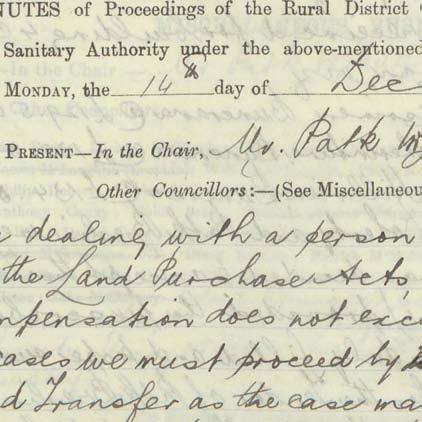 NUTES of Proceedings of the Rural District
Sanitary Authority under the above-mentioned
MONDAY, the 14th day of Dec
PRESENT—In the Chair, Mr. Patk
Other Councillors:—(See Miscellaneou
dealing with a person
the Land Purchase Acts,
mpensation does not exc
cases we must proceed by
d Transfer as the case ma